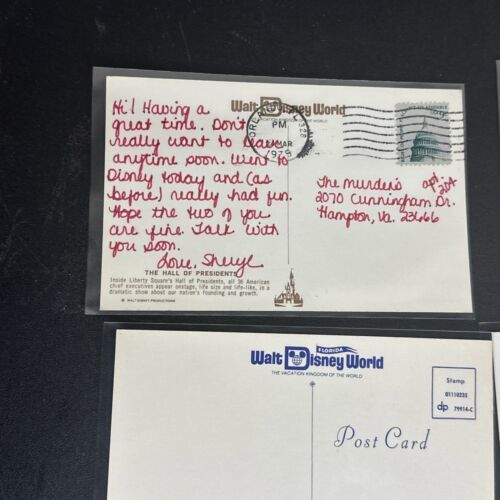 Walt Disney World
THE VACATION KINGDOM OF THE WORLD
Hi! Having a
great time. Don't
really want to leave
anytime soon. Went to
Disney today and (as
before) really had fun.
Hope the two of you
are fine. Talk with
you soon.
Love, Sheryl
PM
MAR
The Murdens apt. 204
2070 Cunningham Dr.
Hampton, Va. 23666
THE HALL OF PRESIDENTS
Inside Liberty Square's Hall of Presidents, all 36 American
chief executives appear onstage, life size and life-like, in a
dramatic show about our nation's founding and growth.
© WALT DISNEY PRODUCTIONS
FLORIDA
Walt Disney World
THE VACATION KINGDOM OF THE WORLD
Stamp
01110235
dp 79914-C
Post Card